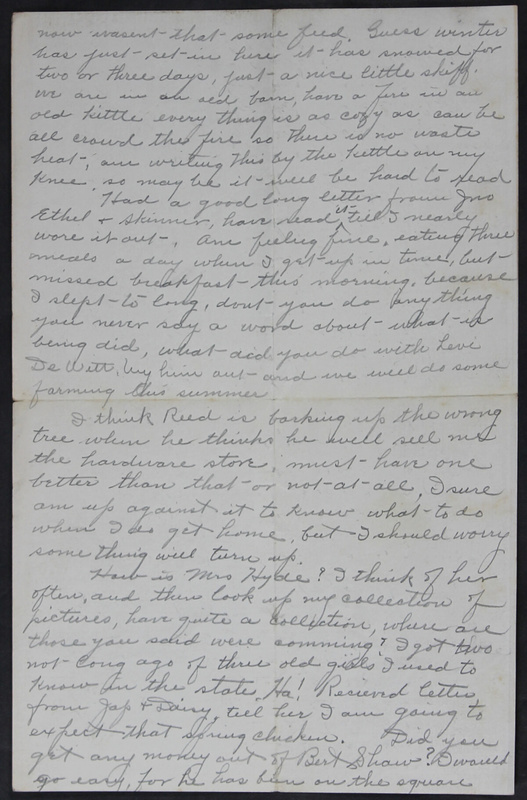 now wasent that some feed. Guess winter
has just set in here it has snowed for
two or three days, just a nice little skiff.
we are in an old barn, have a fire in an
old kettle every thing is as cozy as can be
all crowd the fire so there is no waste
heat, am writing this by the kettle on my
knee, so may be it will be hard to read
Had a good long letter from Jno
Ethel & Skinner, have read it till I nearly
wore it out, Am feeling fine, eating three
meals a day when I get up in time, but
missed breakfast this morning, because
I slept to long, dont you do any thing
you never say a word about what is
being did, what did you do with Levi
De Witt, buy him out and we will do some
farming this summer.
I think Reed is barking up the wrong
tree when he thinks he will sell me
the hardware store, must have one
better than that or not at all, I sure
am up against it to know what to do
when I do get home, but I should worry
some thing will turn up.
How is Mrs Hyde? I think of her
often, and then look up my collection of
pictures, have quite a collection, where are
those you said were comming? I got two
not long ago of three old girls I used to
know in the state, Ha! Recieved letter
from Jap & Daisy, tell her I am going to
expect that spring chicken. Did you
get any money out of Bert Shaw? I would
go easy, for he has been on the square